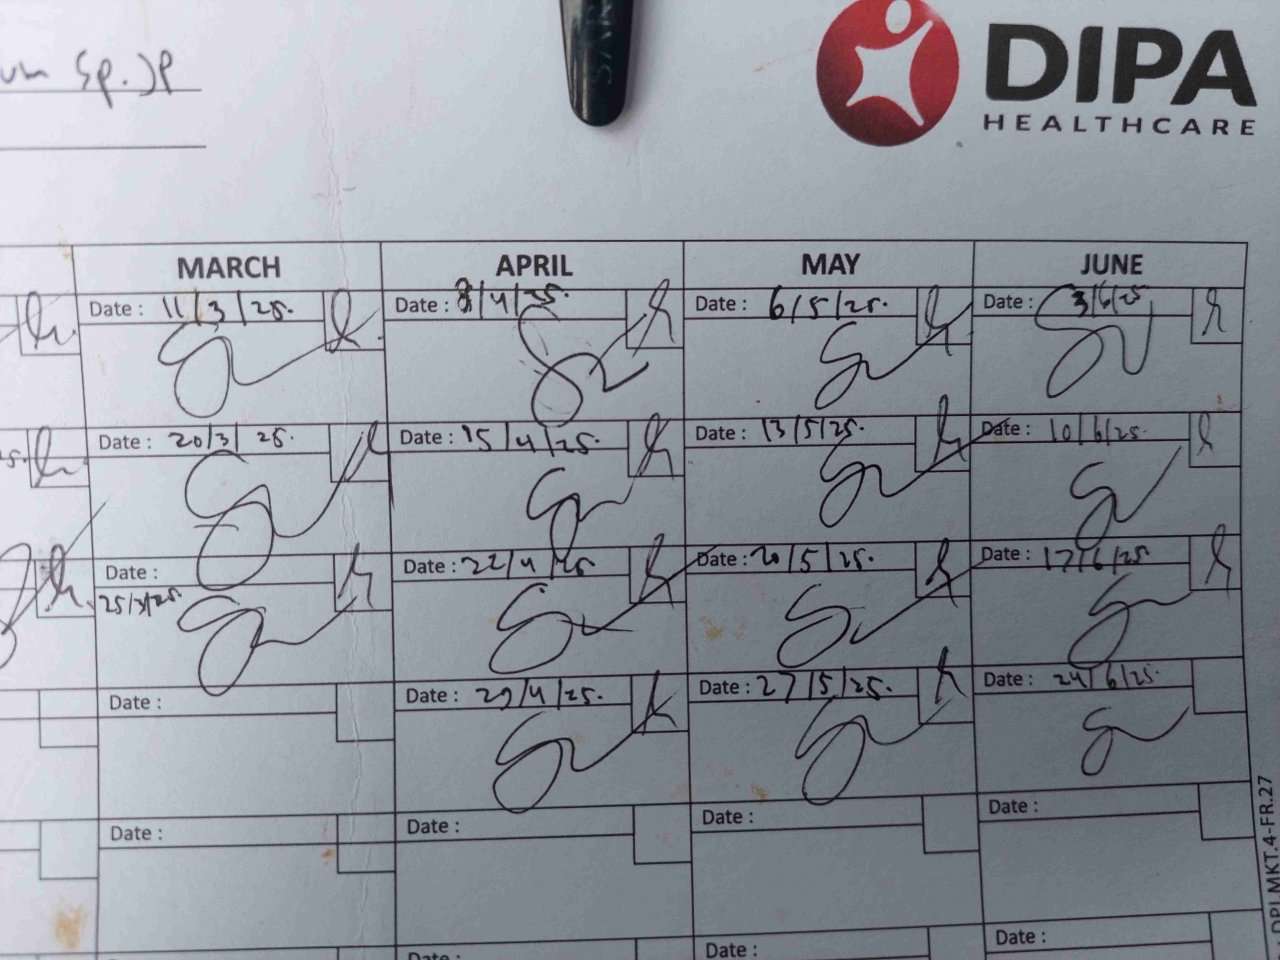 Sp.JP
DIPA
HEALTHCARE
MARCH APRIL MAY JUNE
Date : 11/3/25. Date : 8/4/25. Date : 6/5/25. Date : 3/6/25
Date : 20/3/25. Date : 15/4/25. Date : 13/5/25. Date : 10/6/25.
Date : Date : 22/4/25 Date : 20/5/25. Date : 17/6/25
25/3/25.
Date : Date : 29/4/25. Date : 27/5/25. Date : 24/6/25.
Date : Date : Date : Date :
Date : Date :
DPI.MKT.4-FR.27